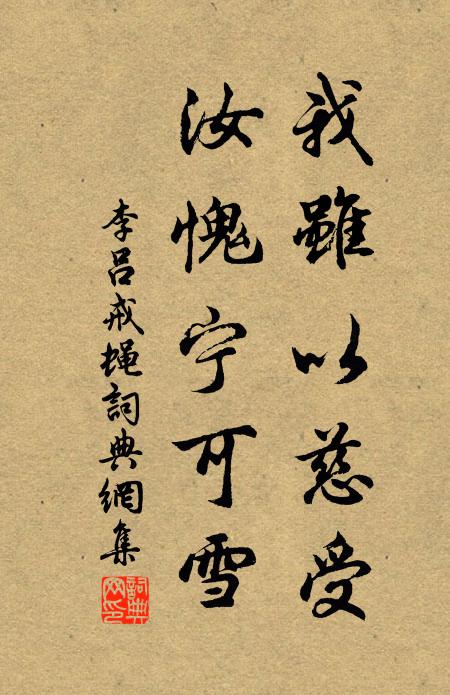 我雖以慈受
汝愧宁可雪
李吕戒蝇詞典網集
詞典网印